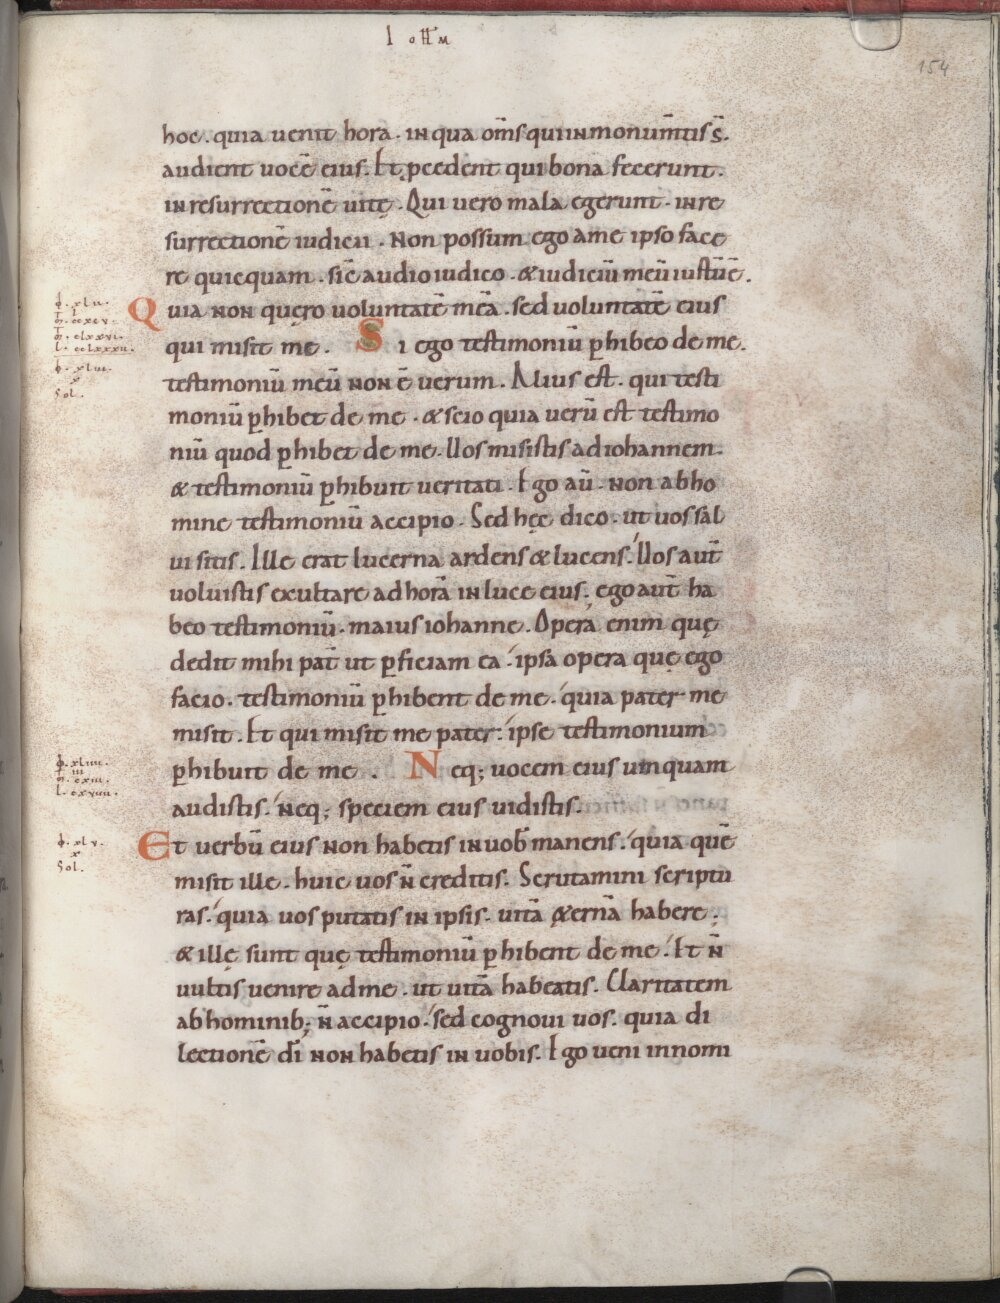 I oħƚƚ м
154
hoc. quia uenit hora. in qua om̄s qui in monum̄tis s̄.
audient uocē eius. Et ꝓcedent qui bona fecerunt.
in resurrectionē uitę. Qui uero mala egerunt. in re
surrectionē iudicii. Non possum ego a me ipso face
re quicquam. sic̄ audio iudico. & iudiciū meū iustū ē.
Quia non quęro uoluntatē mēa. sed uoluntatē eius
qui misit me. Si ego testimoniū ꝑhibeo de me.
testimoniū meū non ē uerum. Alius est. qui testi
moniū ꝑhibet de me. & scio quia uerū est testimo
niū quod ꝑhibet de me. Uos misistis ad iohannem.
& testimoniū ꝑhibuit ueritati. Ego aū. non ab ho
mine testimoniū accipio. Sed hęc dico. ut uos sal
ui sitis. Ille erat lucerna ardens & lucens. Uos aut̄
uoluistis exultare ad horā in luce eius. ego aut̄ ha
beo testimoniū. maius iohanne. Opera enim quę
dedit mihi pat̄ ut ꝑficiam ea. ipsa opera quę ego
facio. testimoniū ꝑhibent de me. quia pater me
misit. Et qui misit me pater. ipse testimonium
ꝑhibuit de me. Neq; uocem eius umquam
audistis. neq; speciem eius uidistis.
Et uerbū eius non habetis in uob̄ manens. quia quē
misit ille. huic uos n̄ creditis. Scrutamini scriptu
ras. quia uos putatis in ipsis. uitā ęternā habere.
& illę sunt quę testimoniū ꝑhibent de me. Et n̄
uultis uenire ad me. ut uitā habeatis. Claritatem
ab hominib; n̄ accipio. sed cognoui uos. quia di
lectionē dī non habetis in uobis. Ego ueni in nomi
ϕ. xlii.
m. ccxcv.
m. clxxvi.
l. cclxxxii.
ϕ. xliii.
x
Sol.
ϕ. xliiii.
iii
m. cxiii.
l. cxviiii.
ϕ. xlv.
x
Sol.